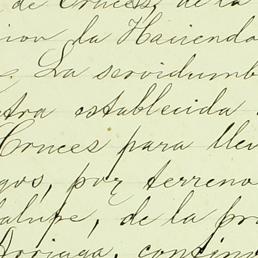 de Cruces, de la
cion la Hacienda
La servidumb
tra establecida
Cruces para llev
gos, por terreno
alupe, de la pro
Arriaga, contin